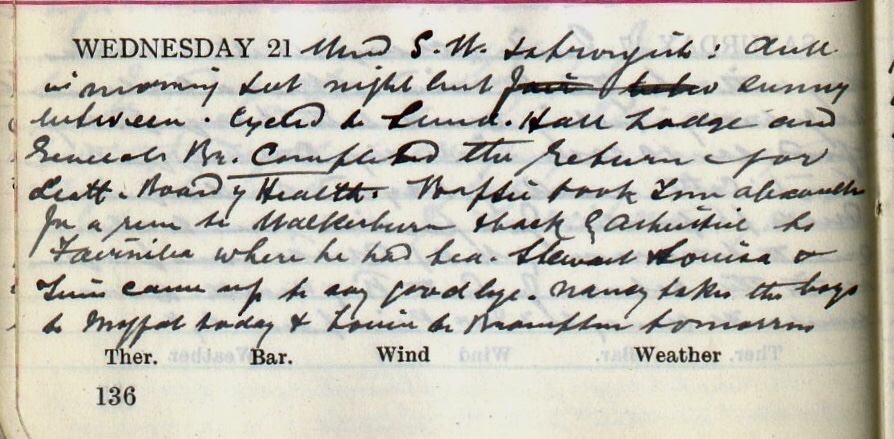 WEDNESDAY 21 Wind S.W. : dull
in morning & at night but fair sunny
between. Cycled to . Hall Lodge and
Br. Completed the return for
Scott. Board of Health. took Tom Alexander
for a run to Walkerburn & back by Ashiestiel to
where he had tea. Stewart & Louisa &
came up to say goodbye. Nancy takes the boys
to Moffat today & Louie to Brampton tomorrow
Ther. Bar. Wind Weather
136